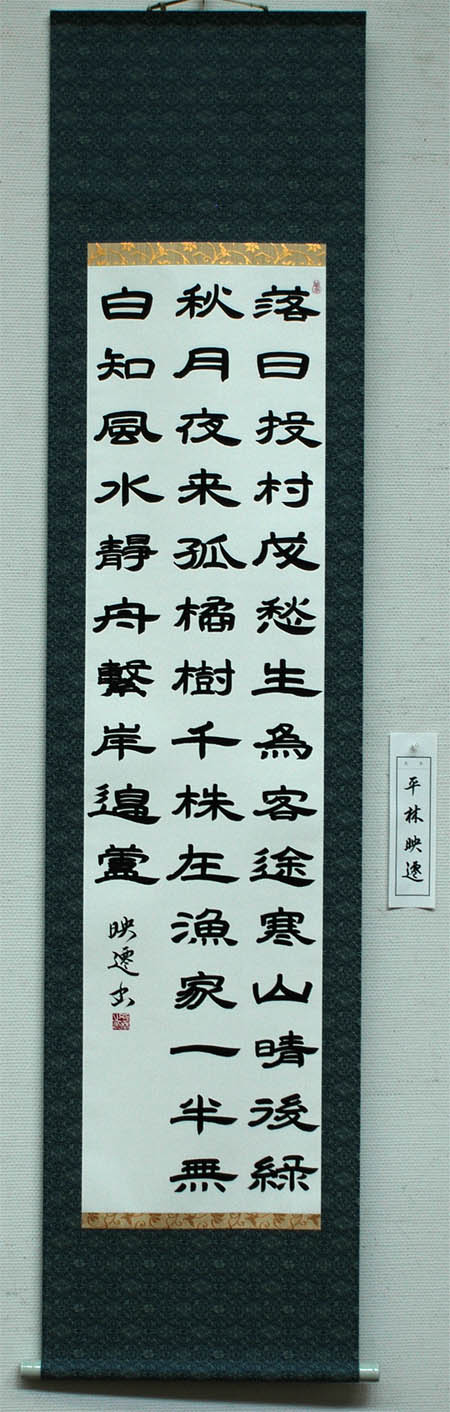 落日投村戍愁生為客途寒山晴後緑
秋月夜来孤橘樹千株在漁家一半無
白知風水靜舟繫岸邊蘆
映遷書
平林映遷